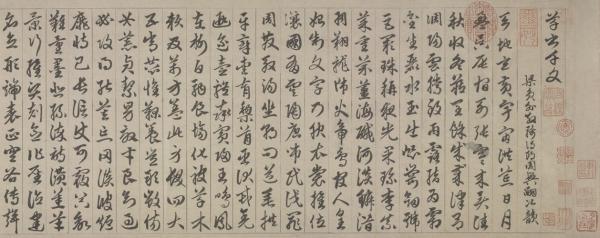 草書千文
梁員外散騎侍郎周興嗣次韻
天地玄黃宇宙洪荒日月
盈昃辰宿列張寒來暑往
秋收冬藏閏餘成歲律呂
調陽雲騰致雨露結為霜
金生麗水玉出崑岡劍號
巨闕珠稱夜光果珍李柰
菜重芥薑海鹹河淡鱗潛
羽翔龍師火帝鳥官人皇
始制文字乃服衣裳推位
讓國有虞陶唐弔民伐罪
周發殷湯坐朝問道垂拱
平章愛育黎首臣伏戎羌
遐邇壹體率賓歸王鳴鳳
在樹白駒食場化被草木
賴及萬方蓋此身髮四大
五常恭惟鞠養豈敢毀傷
女慕貞潔男效才良知過
必改得能莫忘罔談彼短
靡恃己長信使可覆器欲
難量墨悲絲染詩讚羔羊
景行維賢剋念作聖德建
名立形端表正空谷傳聲